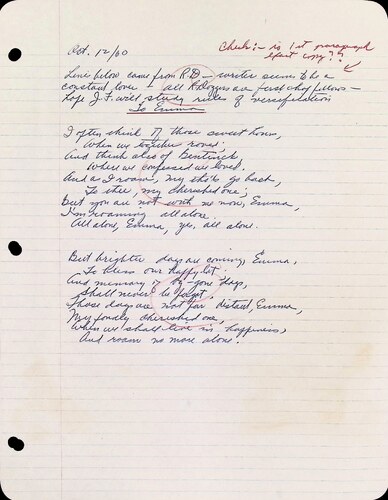 Oct. 12/60
Check:- is 1st paragraph
exact copy??
Lines below came from R.D - writer seems to be a
constant lover - all R.Diggers are first chop fellows -
hope J.F. will study rules of versification
To Emma
I often think of those sweet hours,
When we together roved;
And think also of Bentinck
Where we confessed we loved.
And as I roam, my tho'ts go back,
To thee, my cherished one;
But you are not with me now, Emma,
I'm roaming all alone.
All alone, Emma, yes, all alone.
But brighter days are coming, Emma,
To bless our happy lot;
And memory of by-gone days,
Shall never be forgot,
Those days are not far distant, Emma,
My fondly cherished one,
When we shall live in happiness,
And roam no more alone.